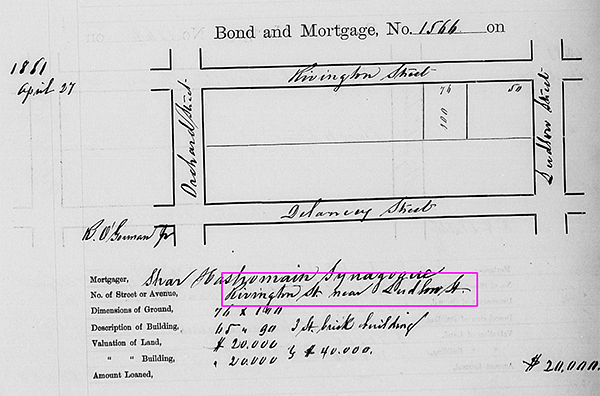 Bond and Mortgage, No. 1566 on
1861
April 27
Rivington Street
Orchard Street
76
100
50
Ludlow Street
Delancey Street
R. O'Gorman Jr
Mortgager, Shar Hashomain Synagogue
No. of Street or Avenue, Rivington St. near Ludlow St.
Dimensions of Ground, 76 x 100
Description of Building, 65 " 90 3 St. brick building
Valuation of Land, $ 20.000
" " Building, " 20.000 } $ 40.000.
Amount Loaned, $ 20,000.